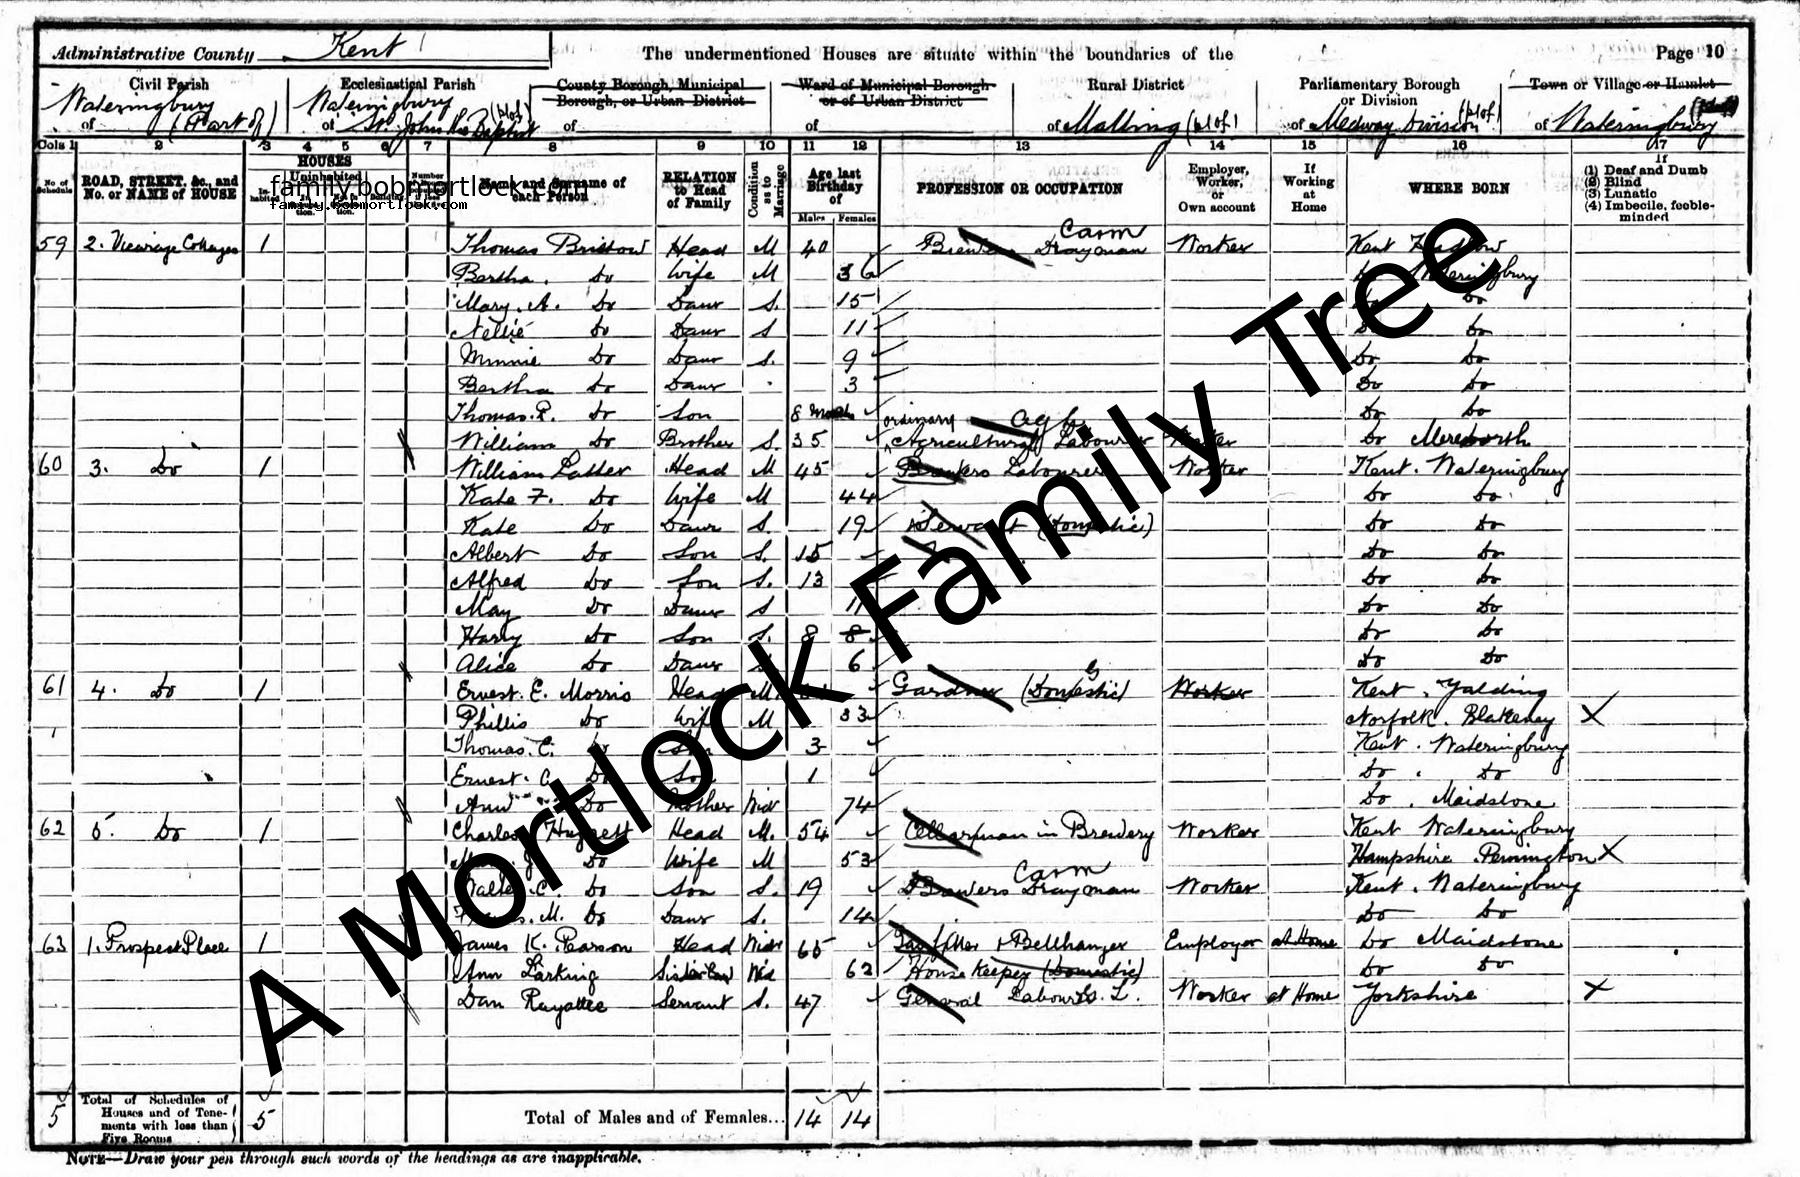 Administrative County Kent The undermentioned Houses are situate within the boundaries of the Page 10
Civil Parish Ecclesiastical Parish County Borough, Municipal Borough, or Urban District Ward of Municipal Borough or of Urban District Rural District Parliamentary Borough or Division Town or Village or Hamlet
of Wateringbury (Part of) of Wateringbury St. John the Baptist (pt of) of of of Malling (pt of) of Medway Division (pt of) of Wateringbury
Cols 1 2 3 4 5 6 7 8 9 10 11 12 13 14 15 16 17
No. of Schedule ROAD, STREET, &c., and No. or NAME of HOUSE HOUSES Inhabited Uninhabited Building Name and Surname of each Person RELATION to Head of Family Condition as to Marriage Age last Birthday of Males Females PROFESSION OR OCCUPATION Employer, Worker, or Own account If Working at Home WHERE BORN If (1) Deaf and Dumb (2) Blind (3) Lunatic (4) Imbecile, feeble-minded
family.bobmortlock.com
family.bobmortlock.com
59 2. Vicarage Cottages 1 Thomas Bristow Head M 40 Drayman Carm Worker Kent Hadlow
Bertha Do Wife M 36 Do Wateringbury
Mary. A. Do Daur S. 15 Do Do
Nellie Do Daur S 11 Do Do
Minnie Do Daur S. 9 Do Do
Bertha Do Daur 3 Do Do
Thomas. R. Do Son 8 Months Do Do
William Do Brother S. 35 ordinary Agricultural Labourer Ag L Worker Do Mereworth
60 3. Do 1 William Latter Head M 45 Brewers Labourer Worker Kent. Wateringbury
Kate F. Do Wife M 44 Do Do
Kate Do Daur S. 19 Servant (Domestic) Do Do
Albert Do Son S. 15 Do Do
Alfred Do Son S. 13 Do Do
May Do Daur S 11 Do Do
Harry Do Son S. 8 8 Do Do
Alice Do Daur 6 Do Do
61 4. Do 1 Ernest. E. Morris Head M Gardner (Domestic) G Worker Kent. Yalding
Phillis Do Wife M 33 Norfolk. Blakeney X
Thomas. E. Do Son 3 Kent. Wateringbury
Ernest. Do Son 1 Do. Do
Ann Do Mother Widr 74 Do. Maidstone
62 5. Do 1 Charles Huggett Head M. 54 Cellarman in Brewery Worker Kent Wateringbury
Do Wife M 53 Hampshire Pennington X
Walter. C. Do Son S. 19 Brewers Drayman Carm Worker Kent. Wateringbury
M. Do Daur S. 14 Do Do
63 1. Prospect Place 1 James K. Pearson Head Widr 65 Gasfitter & Bellhanger Employer at Home Do Maidstone
Ann Larking Wid 62 House Keeper (Domestic) Do Do
Dan Servant S. 47 General Labourer Worker at Home Yorkshire X
5 Total of Schedules of Houses and of Tenements with less than Five Rooms 5 Total of Males and of Females... 14 14
NOTE—Draw your pen through such words of the headings as are inapplicable.
A Mortlock Family Tree